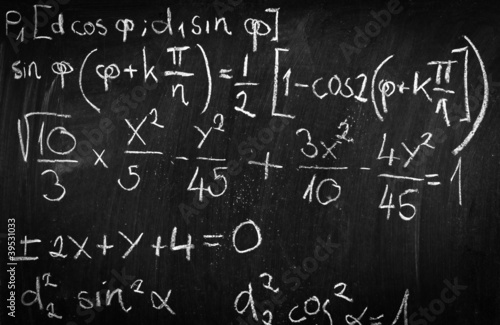 P₁[d cos φ; d₁ sin φ]
sin φ(φ+k π/n)=1/2[1-cos2(φ+k π/n)]
√10/3 × x²/5 - y²/45 + 3x²/10 - 4y²/45 = 1
± 2x+y+4=0
d₂² sin² α d₂² cos² α=1
39531033